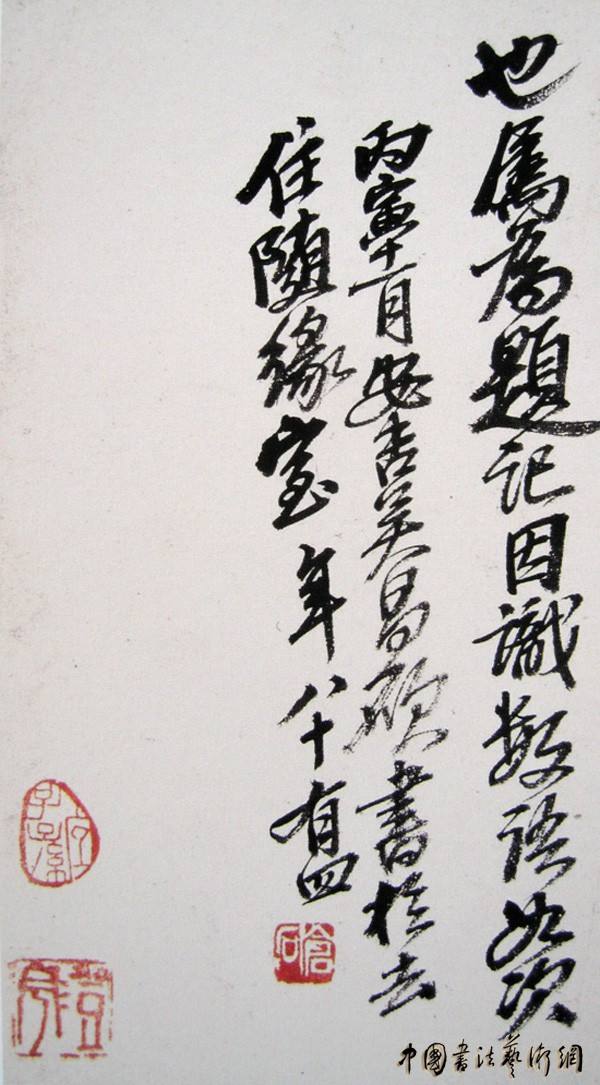 也属為題記因識數語如次
丙寅十一月安吉吴昌碩書於去
住隨緣室年八十有四
倉石
中國書法藝術網